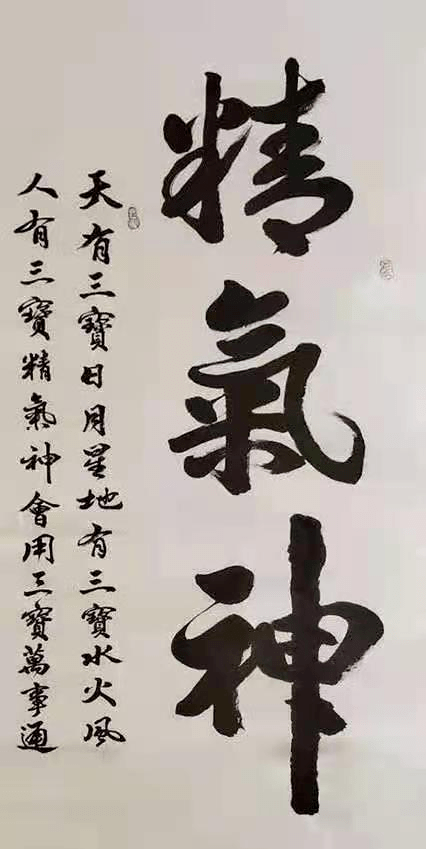 精氣神
天有三寶日月星地有三寶水火風
人有三寶精氣神會用三寶萬事通